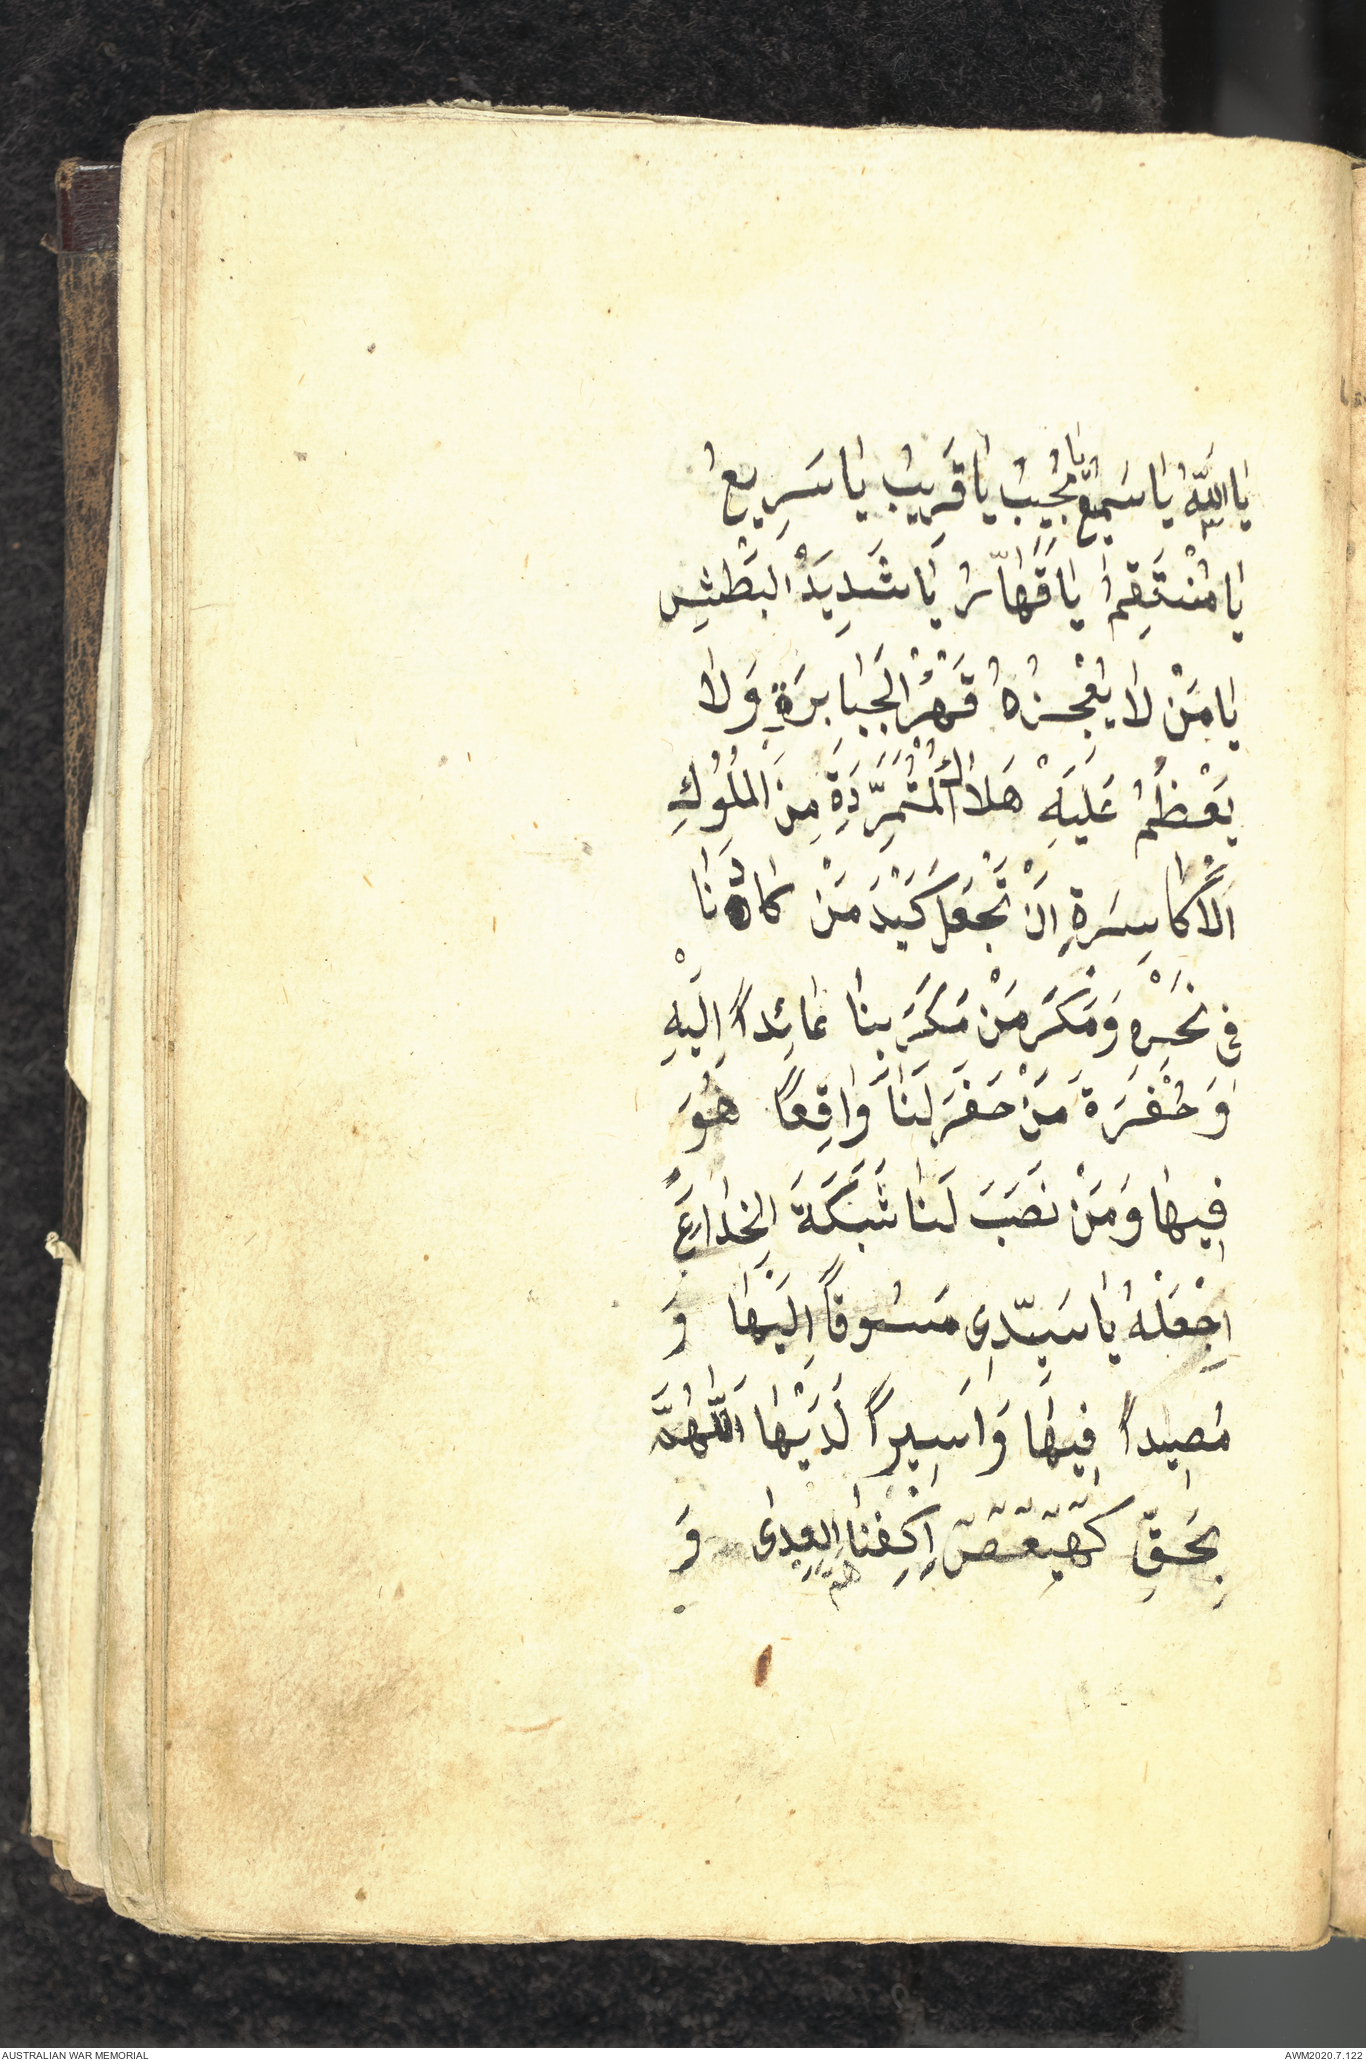 يَا اَللّٰهُ يَا سَمِيعُ يَا مُجِيبُ يَا قَرِيبُ يَا سَرِيعُ
يَا مُنْتَقِمُ يَا قَهَّارُ يَا شَدِيدَ البَطْشِ
يَا مَنْ لَا يُعْجِزُهُ قَهْرُ الْجَبَابِرَةِ وَلَا
يَعْظُمُ عَلَيْهِ هَلَاكُ الْمُتَمَرِّدَةِ مِنَ الْمُلُوكِ
الْاَكَاسِرَةِ اَنْ تَجْعَلَ كَيْدَ مَنْ كَادَنَا
فِي نَحْرِهِ وَمَكْرَ مَنْ مَكَرَ بِنَا عَائِداً اِلَيْهِ
وَحُفْرَةَ مَنْ حَفَرَ لَنَا وَاقِعاً هُوَ
فِيهَا وَمَنْ نَصَبَ لَنَا شَبَكَةَ الْخِدَاعِ
اِجْعَلْهُ يَا سَيِّدِي مَسُوقاً اِلَيْهَا وَ
مُصِيداً فِيهَا وَاَسِيراً لَدَيْهَا اَللّٰهُمَّ
بِحَقِّ كٓهٰيٰعٓصٓ اِكْفِنَا هَمَّ الْعِدٰى وَ
AUSTRALIAN WAR MEMORIAL
AWM2020.7.122